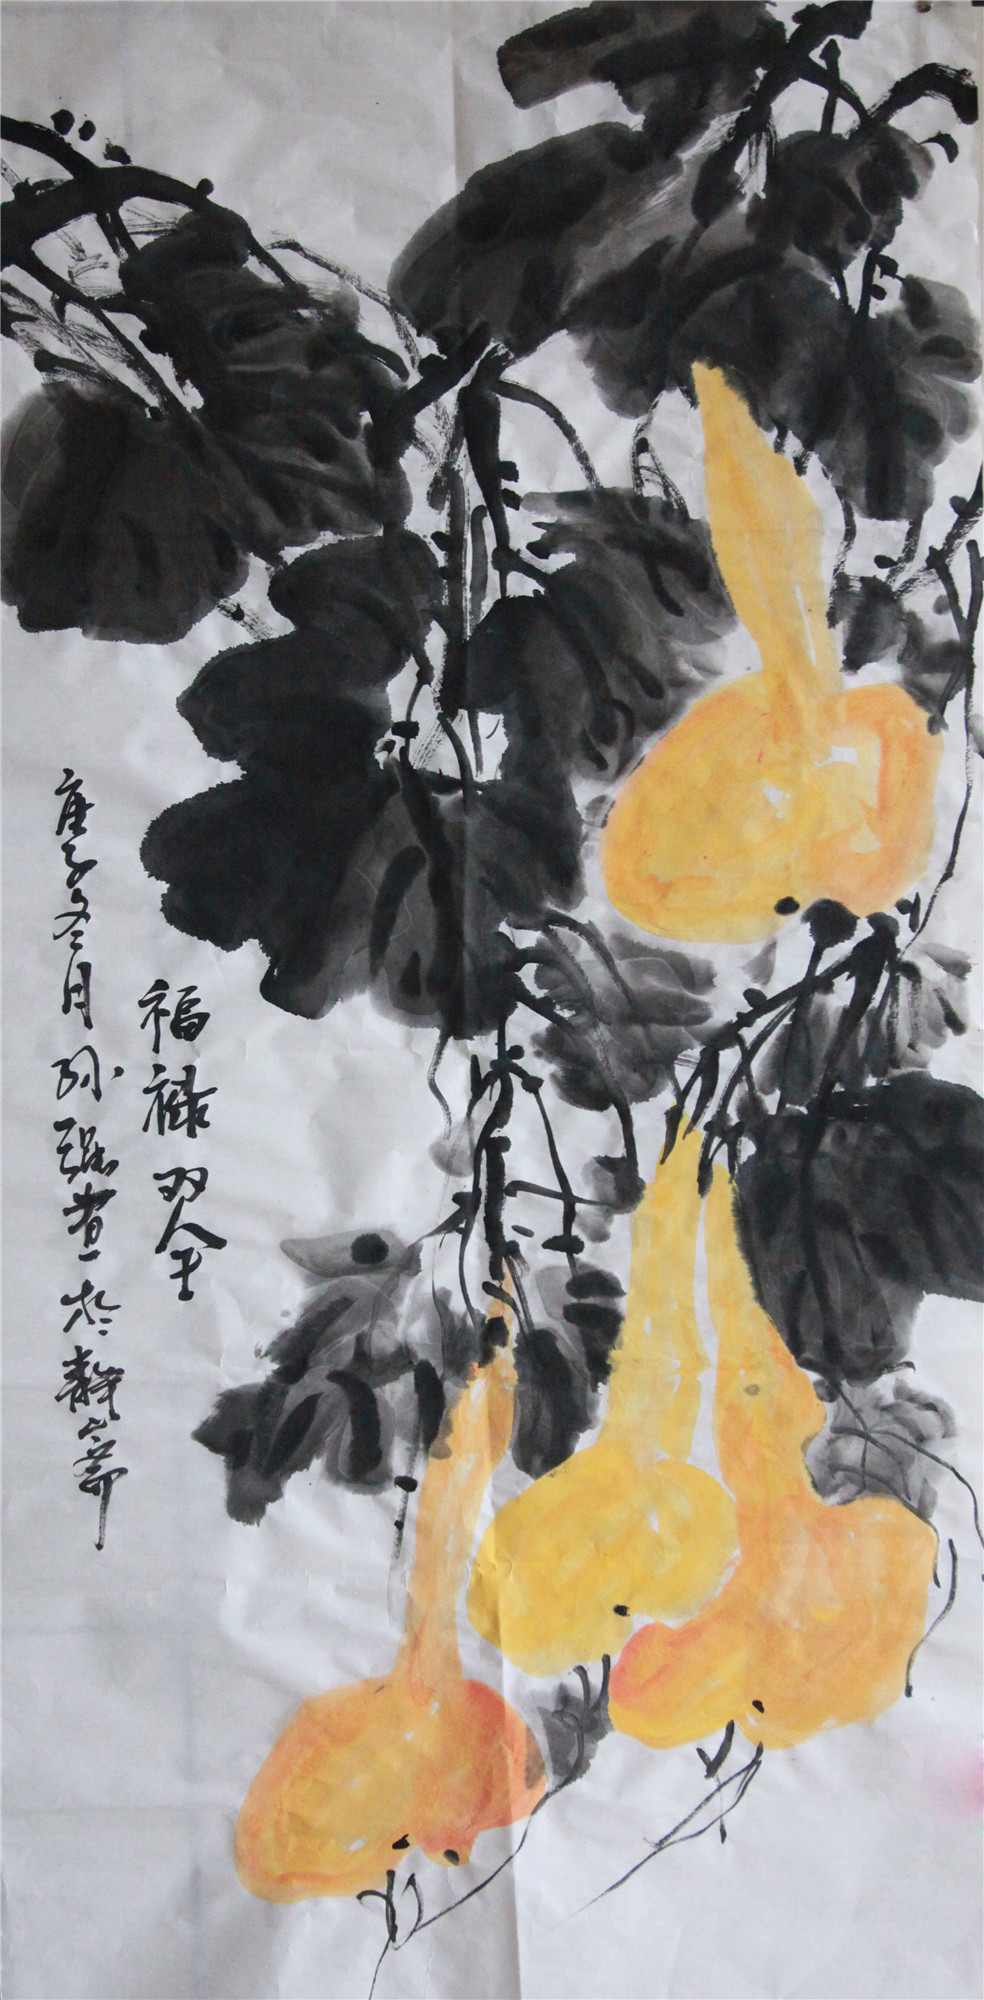 福禄双全
庚子冬月孙强画于静斋